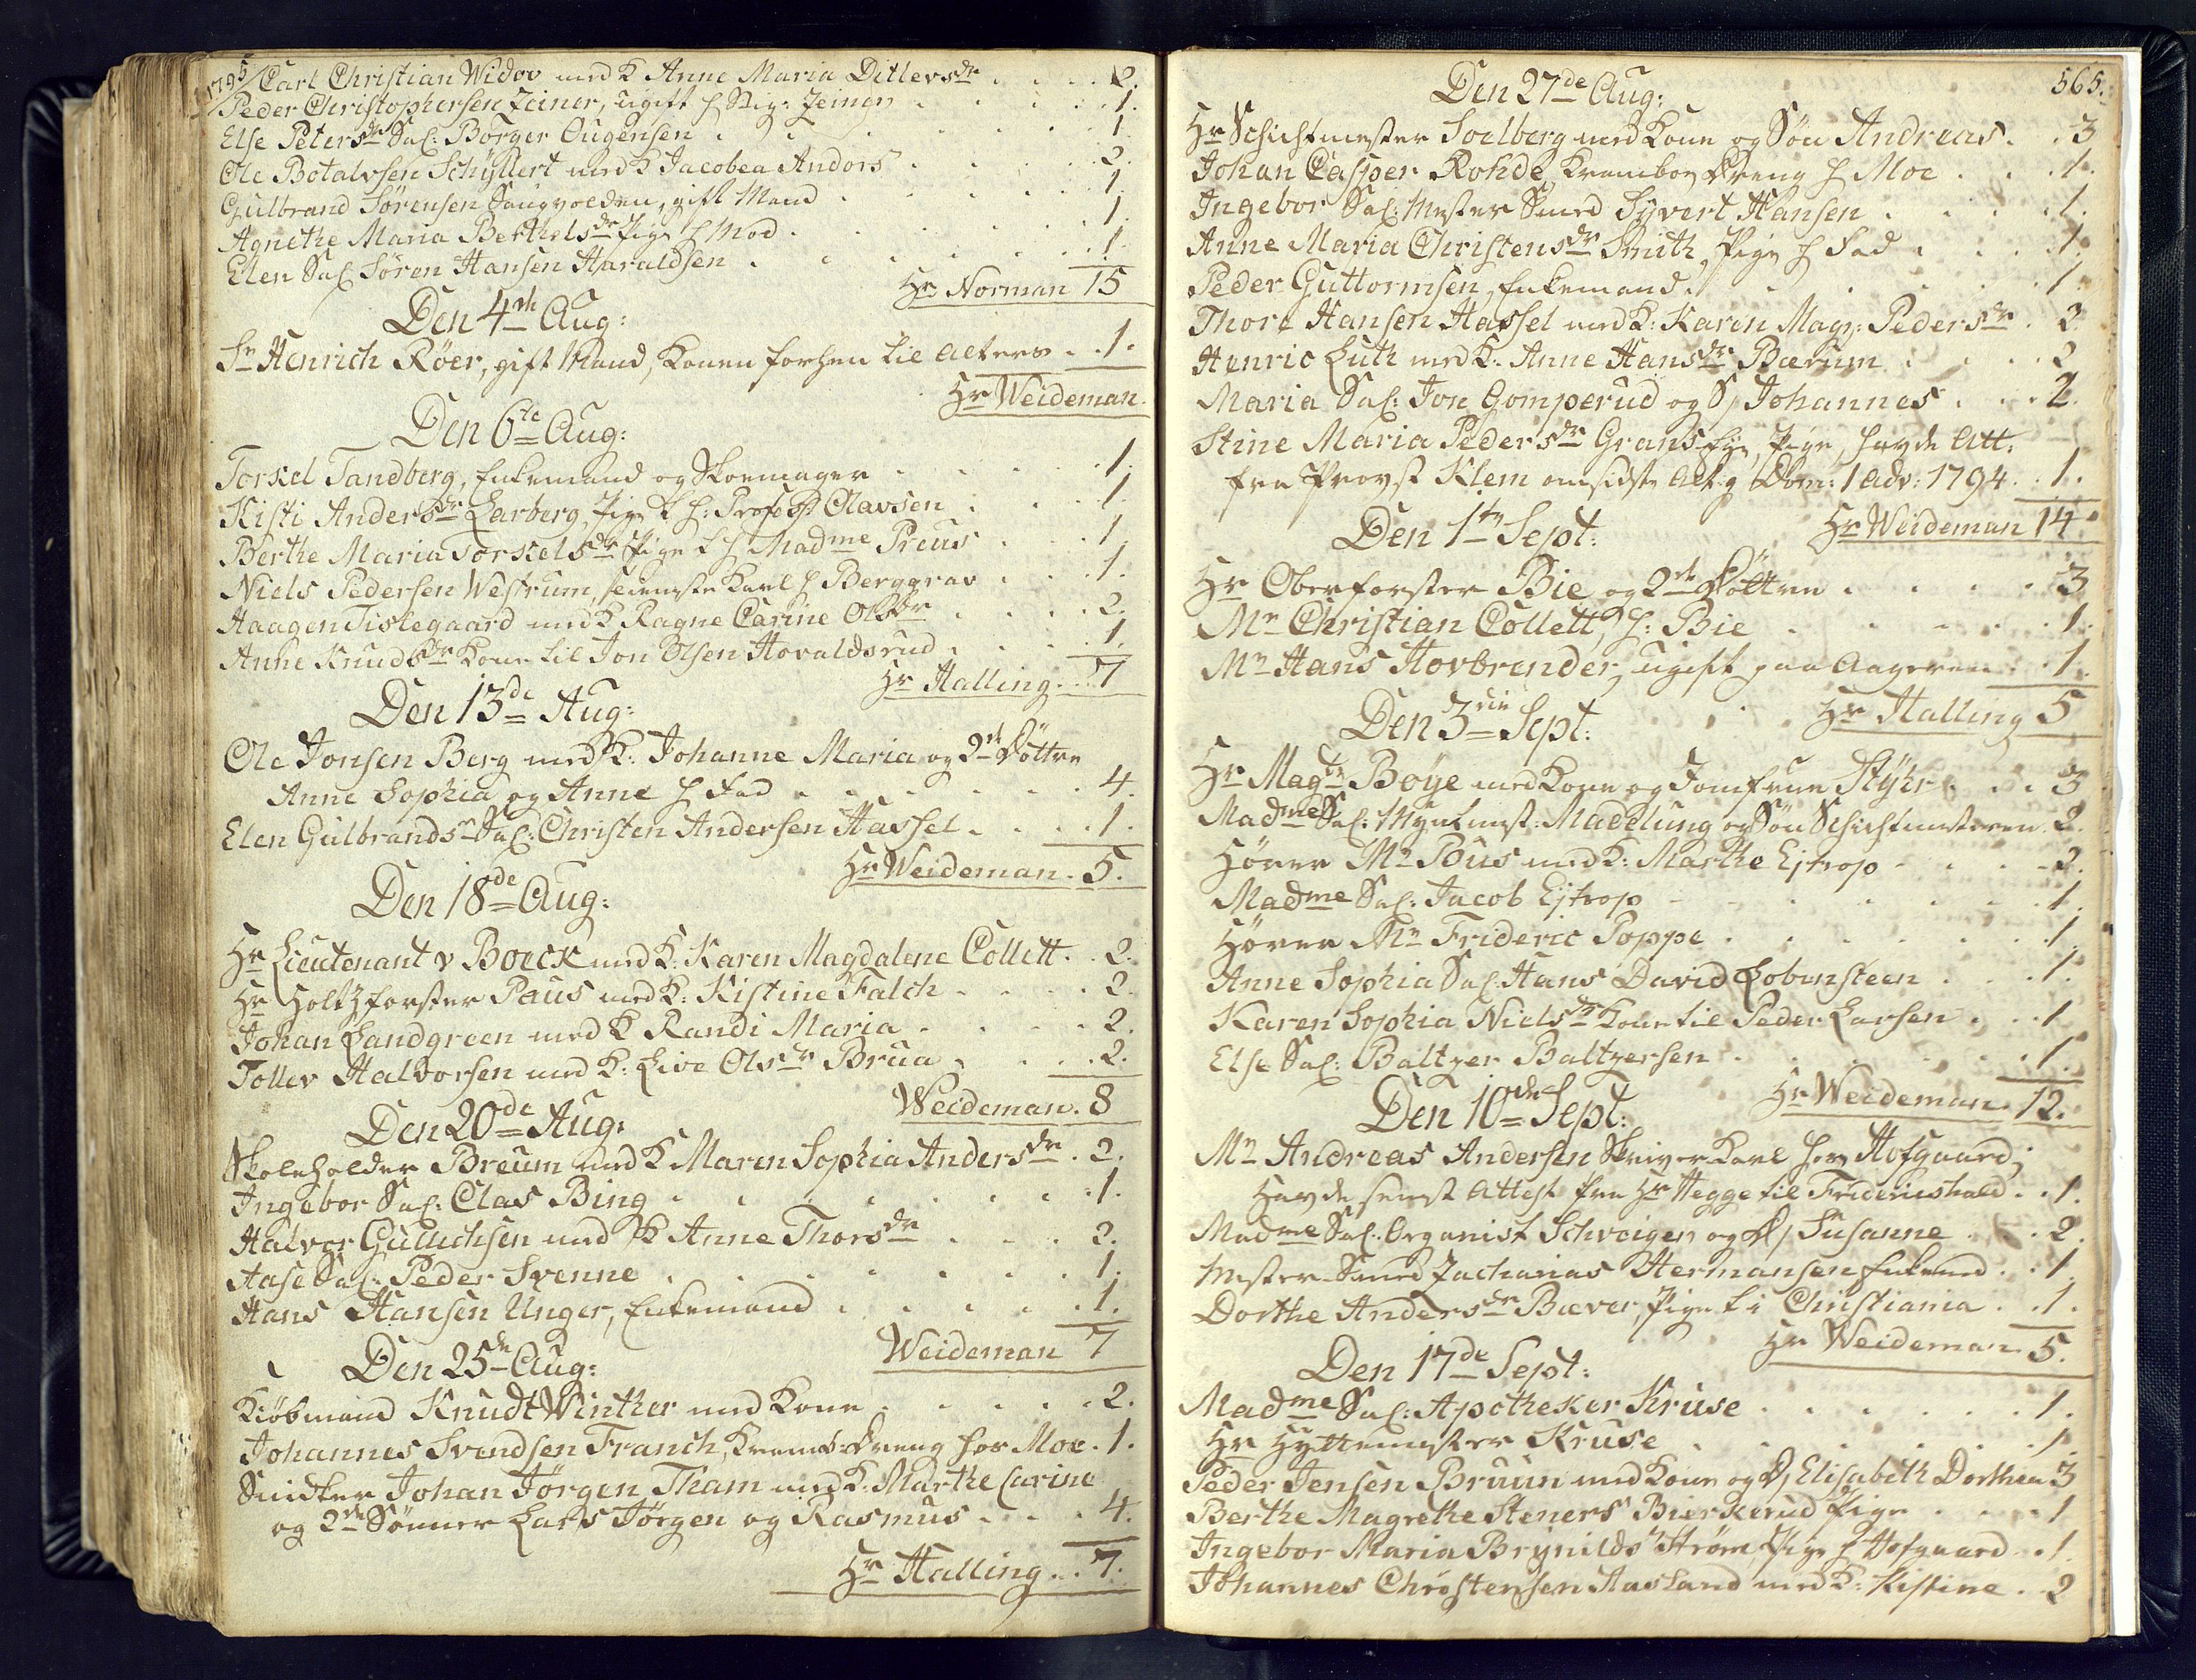 1795/ Carl Christian Widov med K Anne Maria Ditlevsdr . . . 2.
Peder Christophersen Zeiner, ugift h Stig: Zeiner . . . 1.
Else Petersdr Sal: Börger Ougensen . . . 1
Ole Botalvsen Schyllert med K Jacobea Andors . . . 2.
Gulbrand Sörensen Saugvolden, gift Mand . . . 1
Agnethe Maria Berthelsdr Pige h Mod . . . 1
Elen Sal Sören Hansen Haraldsen . . . 1
Hr Norman 15
Den 4de Aug:
Sr Henrich Röer, gift Mand, Konen forhen til Alters . . 1.
Hr Weideman.
Den 6te Aug:
Torkel Tandberg, Enkemand og Skoemager . . . 1.
Kisti Andersdr Larberg, Pige h: Prof Olavsen . . . 1.
Berthe Maria Torkelsdr Pige h Madme Preus . . . 1
Niels Pedersen Westrum, tieneste Karl h Berggrav . . . 1.
Haagen Tistegaard med K Ragne Carine Olsdr . . . 2.
Anne Knudsdr Kone til Jon Olsen Hovaldsrud . . . 1.
Hr Halling . . 7
Den 13de Aug:
Ole Jonsen Berg med K: Johanne Maria og 2de Döttre
Anne Sophia og Anne h Fad . . . 4.
Elen Gulbrandsr Sal: Christen Andersen Hassel . . . 1.
Hr Weideman . 5.
Den 18de Aug:
Hr Lieutenant v Boeck med K: Karen Magdalene Collett . . 2.
Hr Holtzforster Paus med K: Kistine Falch . . . 2.
Johan Landgreen med K Randi Maria . . . 2.
Tollev Halvorsen med K: Live Olsdr Brua . . . 2.
Weideman . 8
Den 20de Aug:
Skoleholder Breum med K Maren Sophia Andersdr . 2.
Ingebor Sal: Clas Bing . . . 1.
Halvor Gulichsen med K Anne Thorsdr . . . 2.
Aase Sal: Peder Svenne . . . 1.
Hans Hansen Unger, Enkemand . . . 1.
Weideman 7
Den 25de Aug:
Kiöbmand Knudt Winther med Kone . . . 2.
Johannes Svendsen Franch, Kramb: Dreng hos Moe . 1.
Snidker Johan Jörgen Tham med K: Marthe Carine
og 2de Sönner Lars Jörgen og Rasmus . . . 4.
Hr Halling . . 7.
565.
Den 27de Aug:
Hr Schichtmester Soelberg med Kone og Sön Andreas . . 3
Johan Casper Rohde, Krambod Dreng h Moe . . . 1.
Ingebor Sal: Mester Smed Syvert Hansen . . . 1.
Anne Maria Christensdr Smith, Pige h Fad . . . 1.
Peder Guttormsen, Enkemand . . . 1.
Thore Hansen Hassel med K: Karen Magr: Pedersdr . 2
Henric Luth med K: Anne Hansdr Bærum . . . 2
Maria Sal: Jon Gomperud og S/ Johannes . . . 2.
Stine Maria Pedersdr Grans, Pige, havde Att:
fra Provst Klem om sidste Altg Dom: 1 Adv: 1794 . . 1.
Hr Weideman 14
Den 1te Sept:
Hr Oberforster Bie og 2de Döttre . . . 3
Mr Christian Collett, h: Bie . . . 1.
Mr Hans Hovbrender, ugift paa Aageren . . 1.
Hr Halling 5
Den 3die Sept:
Hr Magtr Boye med Kone og Jomfrue Styhr . . . 3
Madme Sal: Myntmest: Madelung og Sön Schichtmesteren . 2.
Hörer Mr Pous med K: Marthe Ejtrop . . . 2.
Madme Sal: Jacob Ejtrop . . . 1.
Hörer Mr Frideric Poppe . . . 1.
Anne Sophia Sal: Hans David Lobensteen . . . 1.
Karen Sophia Nielsdr Kone til Peder Larsen . . . 1
Else Sal: Baltzer Baltzersen . . . 1.
Hr Weideman 12.
Den 10de Sept:
Mr Andreas Andersen Skriver Karl hos Hofgaard;
Havde senest Attest fra Hr Hegge til Friderichshald . . 1.
Madme Sal: Organist Schweiger og D/ Susanne . . . 2.
Mester Smed Zacharias Hermansen Enkemd . . 1.
Dorthe Andersdr Bæver, Pige t i Christiania . . 1.
Hr Weideman 5.
Den 17de Sept:
Madme Sal: Apotheker Kruse . . . 1.
Hr Hyttemester Kruse . . . 1.
Peder Jensen Bruun med Kone og D/ Elisabeth Dorthea 3
Berthe Magrethe Steners Bierkerud Pige . . . 1
Ingebor Maria Brynilds Ström, Pige h Hofgaard . . 1.
Johannes Christensen Aasland med K: Kistine . . 2